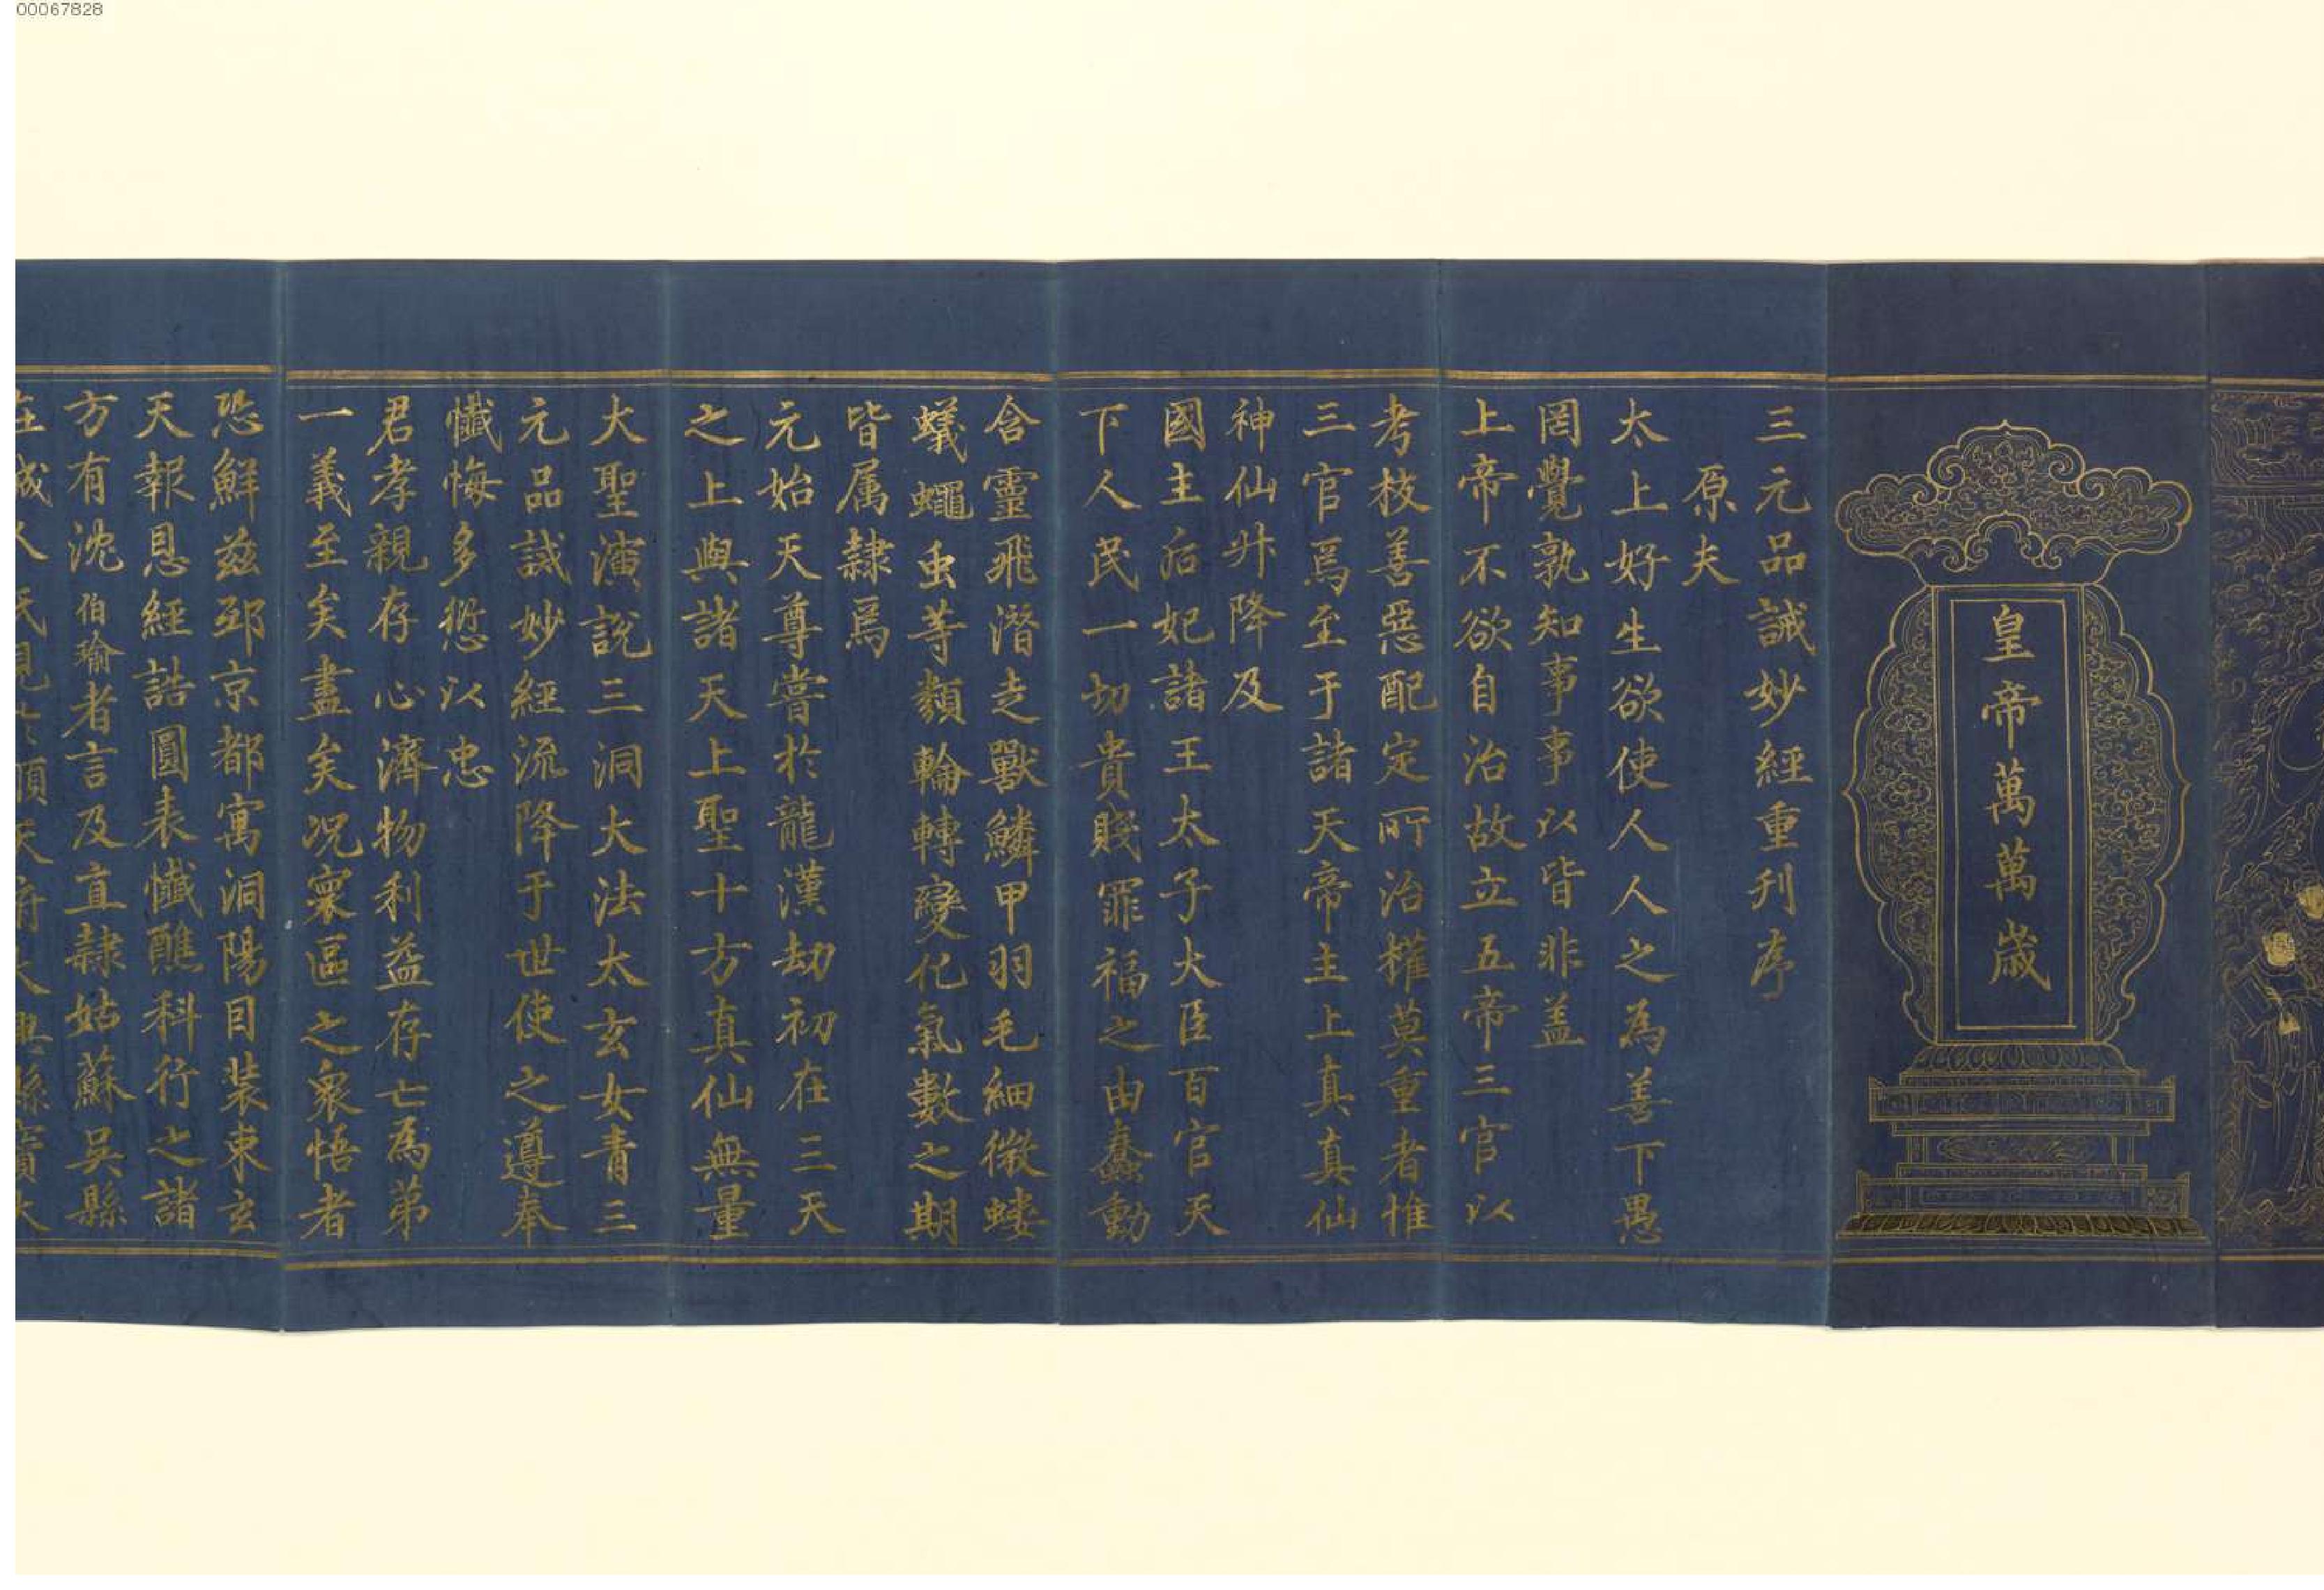 00067828
皇帝萬萬歲
三元品誡妙經重刋序
原夫
太上好生欲使人人之為善下愚
罔覺孰知事事以皆非盖
上帝不欲自治故立五帝三官以
考校善惡配定所治權莫重者惟
三官焉至于諸天帝主上真真仙
神仙升降及
國主后妃諸王太子大臣百官天
下人民一切貴賤罪福之由蠢動
含靈飛潛走獸鱗甲羽毛細微螻
蟻蠅虫等類輪轉變化氣數之期
皆属隸焉
元始天尊嘗於龍漢劫初在三天
之上與諸天上聖十方真仙無量
大聖演說三洞大法太玄女青三
元品誡妙經流降于世使之遵奉
懺悔多愆以忠
君孝親存心濟物利益存亡為第
一義至矣盡矣况寰區之衆悟者
恐鮮兹邳京都寓洞陽目裝東玄
天報恩經誥圓表懺醮科行之諸
方有沈伯瑜者言及直隸姑蘇吳縣